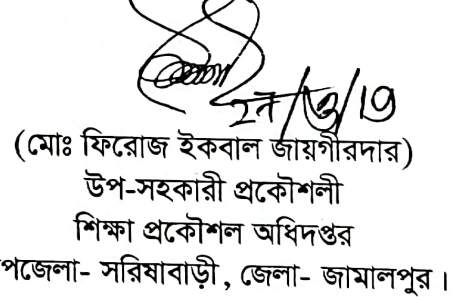 (মোঃ ফিরোজ ইকবাল জায়গীরদার)
উপ-সহকারী প্রকৌশলী
শিক্ষা প্রকৌশল অধিদপ্তর
পজেলা- সরিষাবাড়ী, জেলা- জামালপুর।